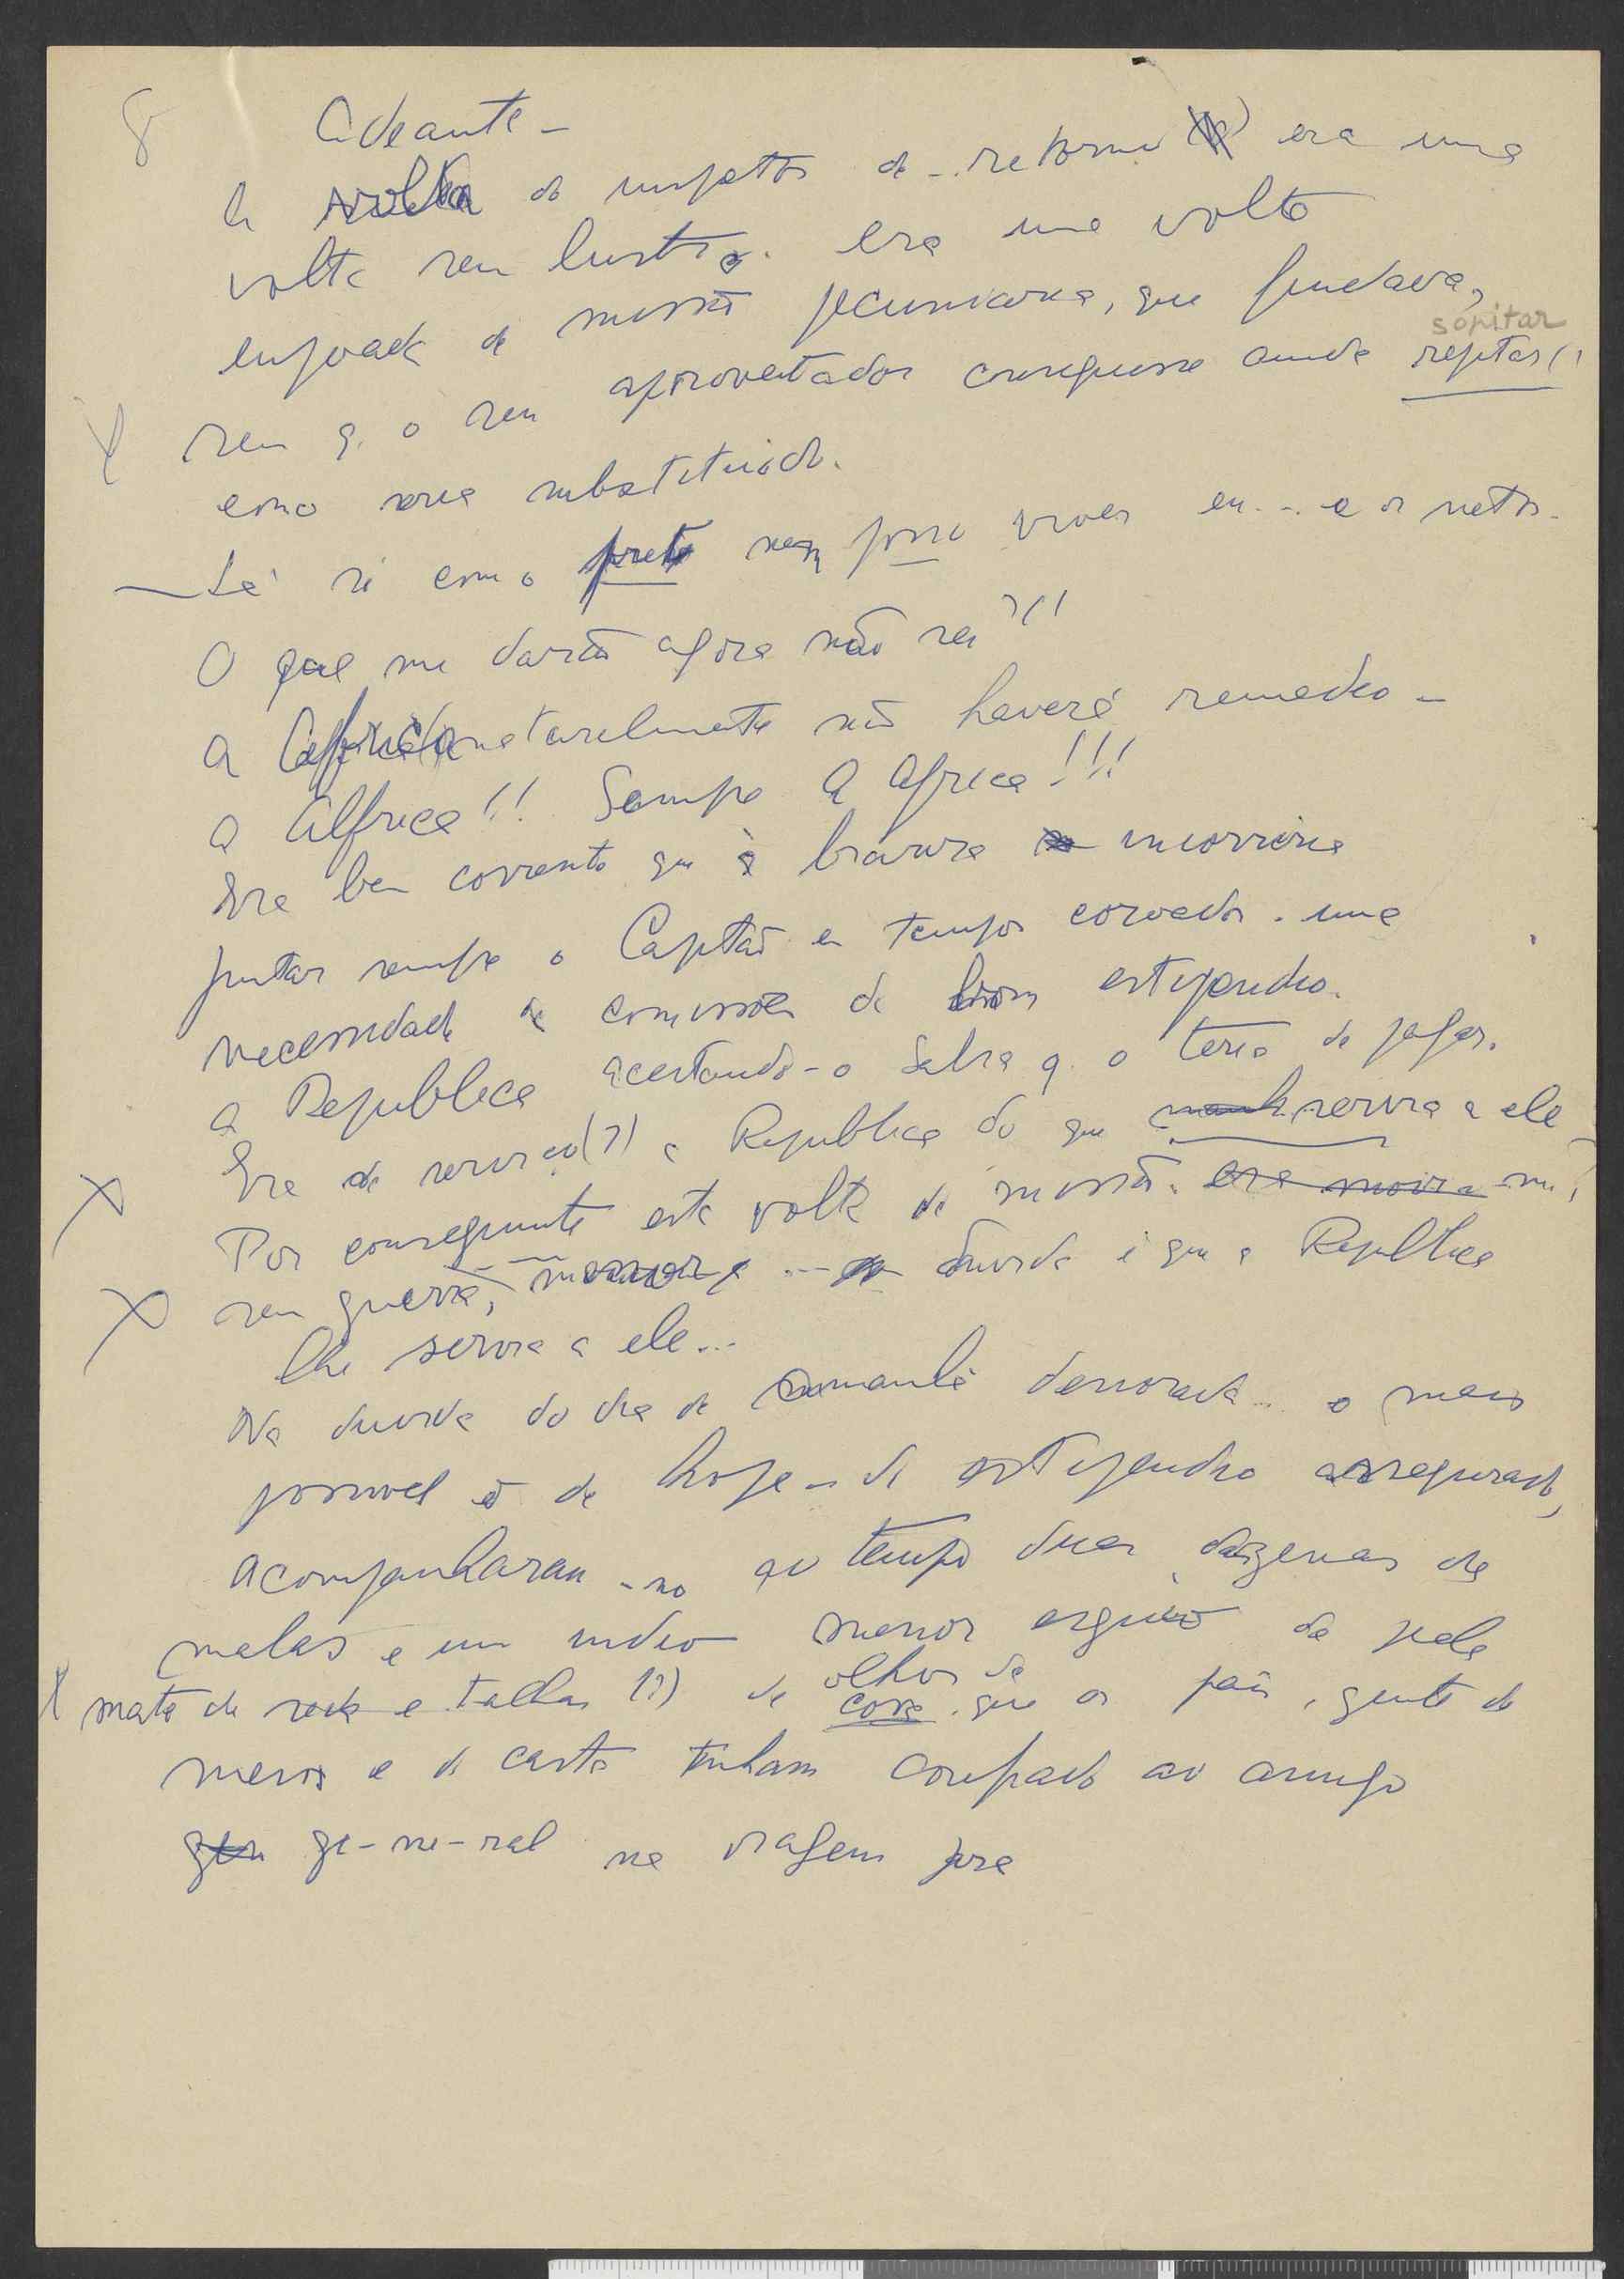 8 Adeante -
A volta do de - retorno era uma
volta sem lustro. era uma volta
enjoada de missão pecuniaria, que findava,
sopitar
sem q. o seu aproveitador conseguisse ainda reptar (?)
como seria substituido.
- Lá só com o preto nem posso viver eu... e os netos.
O que me darão agora não sei?!!
A Africa naturalmente não haverá remedio -
a Africa!! Sempre a Africa!!!
Era bem corrente que à bravura
juntar sempre o Capitão em tempos coroados. uma
necessidade de comissões de bom estipendio.
a Republica aceitando-o sabia q. o teria de pagar.
Era de serviço (?) a Republica do que servira a ele
Por conseguinte esta volta de missão. era
sem guerra, ... duvida é que a Republica
lhe servia a ele...
Na duvida do dia de amanhã demorada... o mais
possivel o de hoje - de estipendio assegurado,
acompanharam-no ao tempo duas dezenas de
malas e um indio menor esguio de pele
olhos de
mate de seda e talhas (?) de corsa. que os pais, gente de
meios e de casta tinham confiado ao amigo
ge-ne-ral na viagem pra